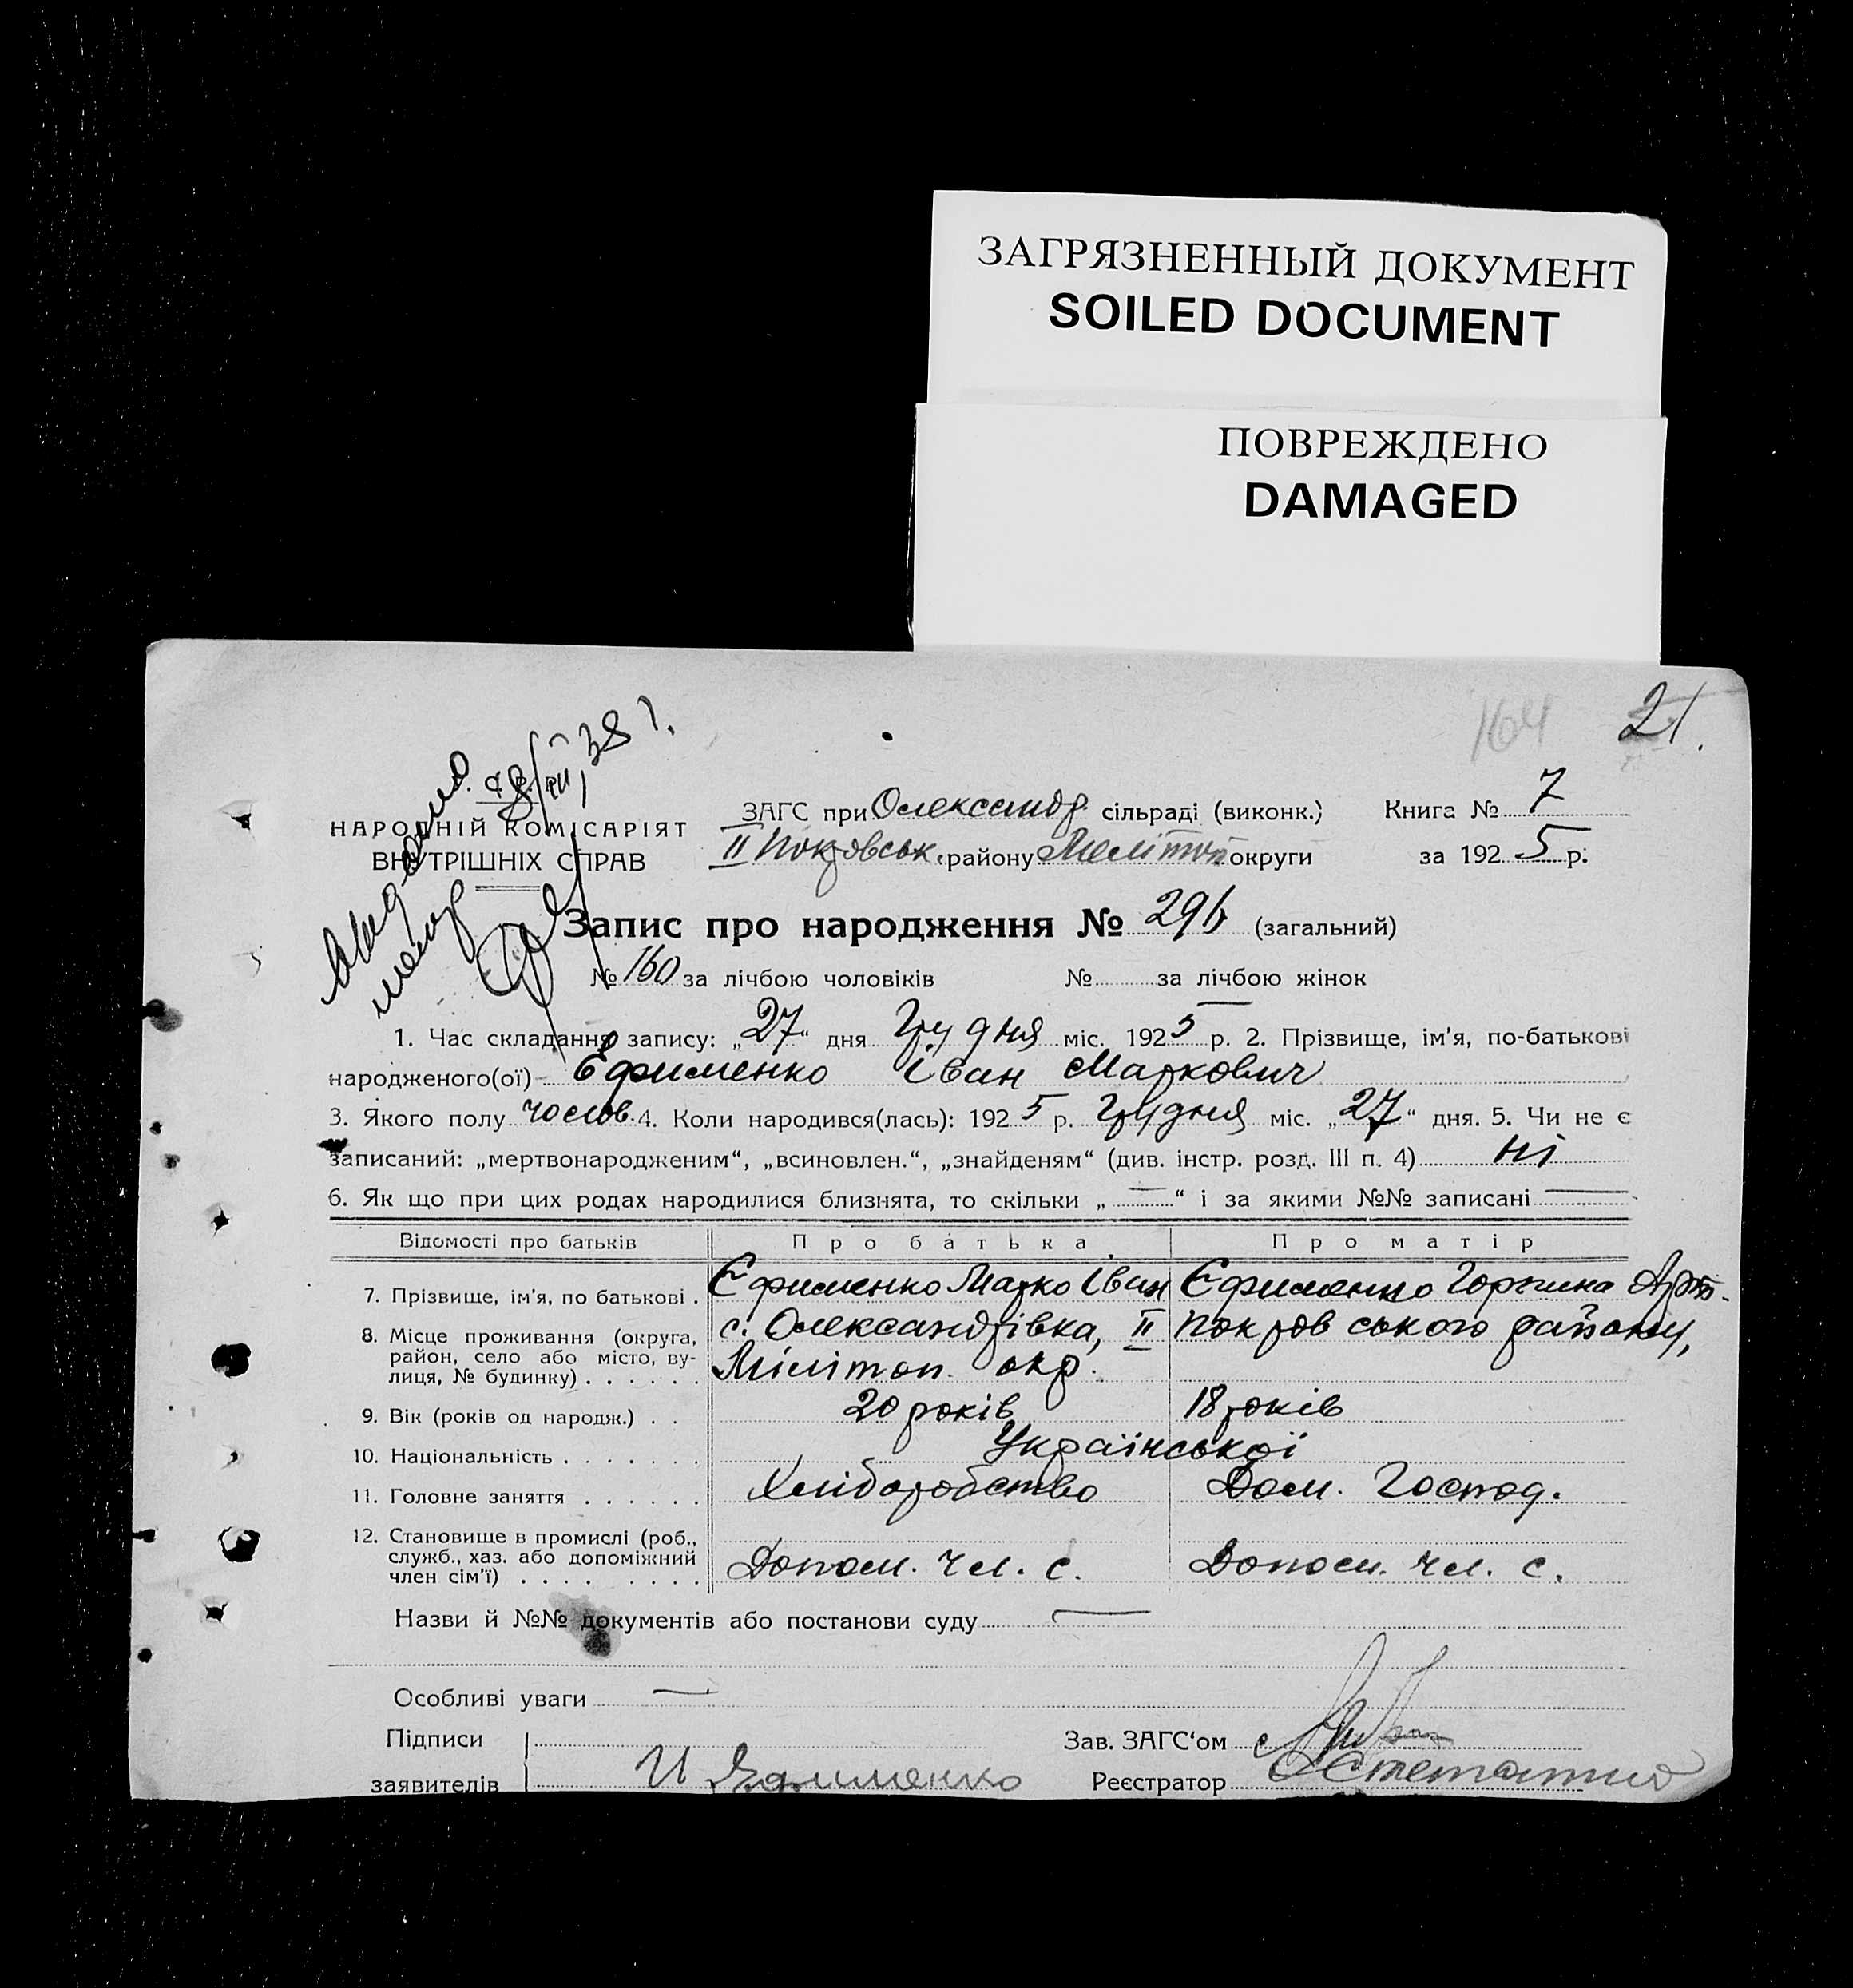 ЗАГРЯЗНЕННЫЙ ДОКУМЕНТ
SOILED DOCUMENT
ПОВРЕЖДЕНО
DAMAGED
164
21.
НАРОДНІЙ КОМІСАРІЯТ
ВНУТРІШНІХ СПРАВ
ЗАГС при Олександр. сільраді (виконк.) Книга № 7
II Покровськ. району Мелітоп. округи за 1925 р.
Запис про народження № 296 (загальний)
№ 160 за лічбою чоловіків № за лічбою жінок
1. Час складання запису: „27“ дня Грудня міс. 1925 р. 2. Прізвище, ім'я, по-батькові
народженого(ої) Єфименко Іван Маркович
3. Якого полу чолов. 4. Коли народився(лась): 1925 р. Грудня міс. „27“ дня. 5. Чи не є
записаний: „мертвонародженим“, „всиновлен.“, „знайденям“ (див. інстр. розд. III п. 4) ні
6. Як що при цих родах народилися близнята, то скільки „—“ і за якими №№ записані —
Відомості про батьків Про батька Про матір
7. Прізвище, ім'я, по батькові . Єфименко Марко Іван Єфименко Горпина
8. Місце проживання (округа, с. Олександрівка, II Покровського району,
район, село або місто, ву- Мілітоп. окр.
лиця, № будинку) . . . . . .
9. Вік (років од народж.) . . 20 років 18 років
10. Національність . . . . . . . Української
11. Головне заняття . . . . . . Хліборобство Дом. Господ.
12. Становище в промислі (роб.,
служб., хаз. або допоміжний Допом. чл. с. Допом. чл. с.
член сім'ї) . . . . . . . .
Назви й №№ документів або постанови суду —
Особливі уваги —
Підписи Зав. ЗАГС'ом
заявителів И Ефименко Реєстратор